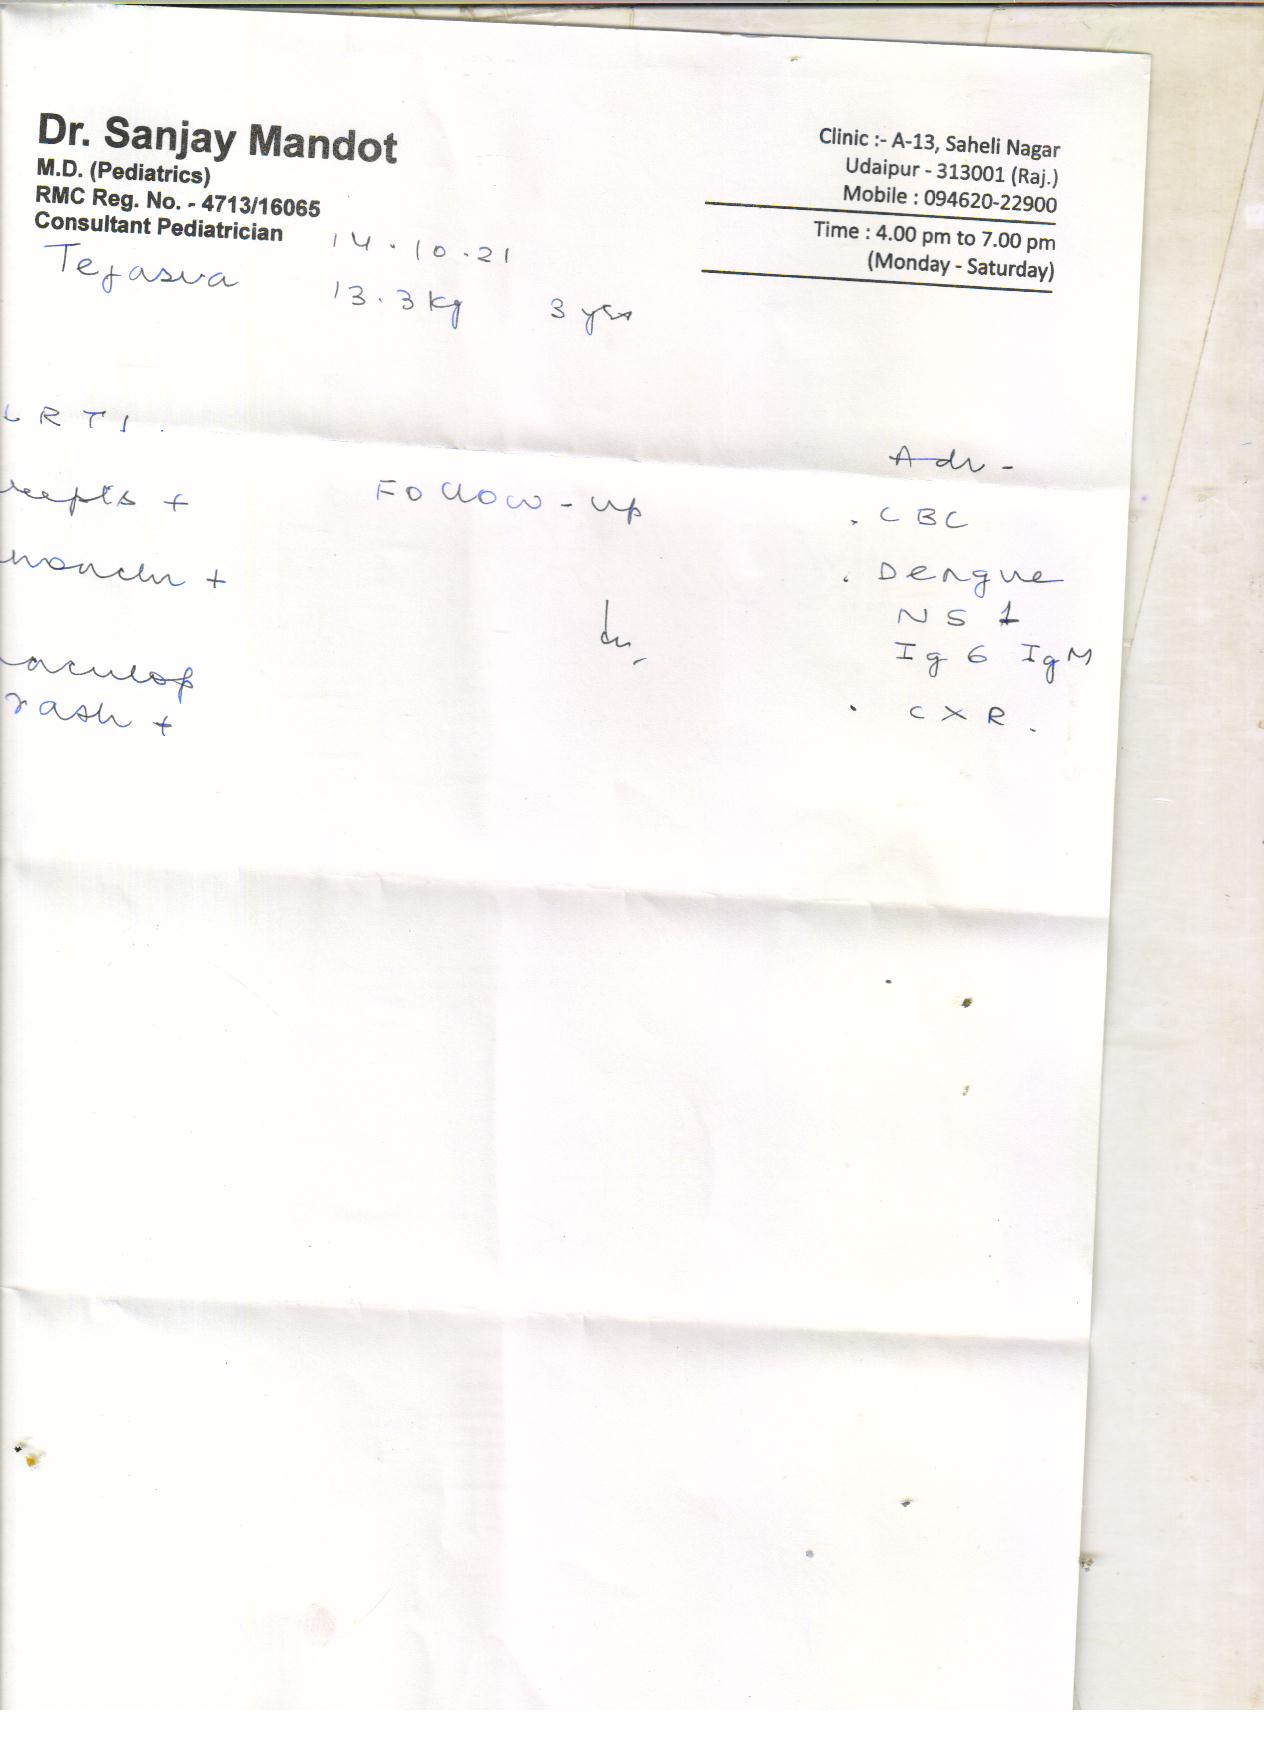 Dr. Sanjay Mandot
M.D. (Pediatrics)
RMC Reg. No. - 4713/16065
Consultant Pediatrician
Clinic :- A-13, Saheli Nagar
Udaipur - 313001 (Raj.)
Mobile : 094620-22900
Time : 4.00 pm to 7.00 pm
(Monday - Saturday)
14.10.21
Tejasva
13.3 kg 3 yrs
LRTI.
+
Follow-up
+
rash +
Adv -
. CBC
. Dengue
NS 1
IgG IgM
. CXR.